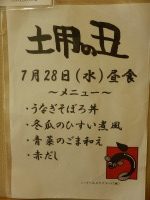 土用の丑
7月28日(水)昼食
～メニュー～
・うなぎそぼろ丼
・冬瓜のひすい煮風
・青菜のごま和え
・赤だし